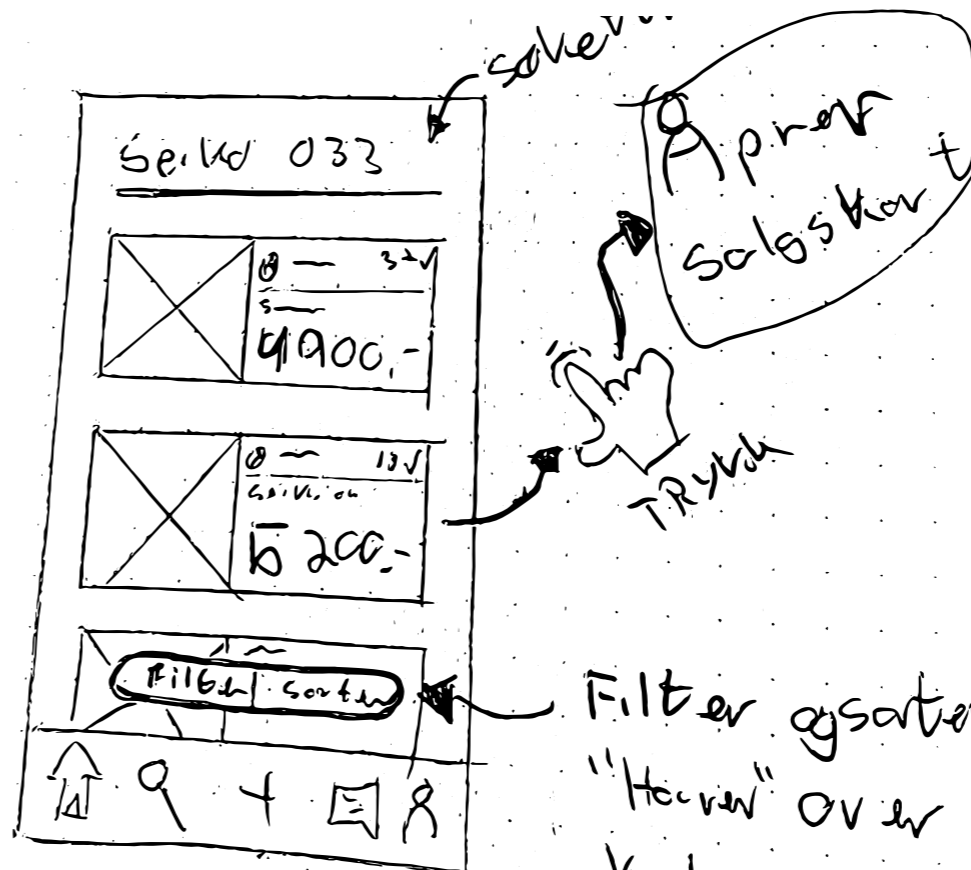 Seiko 033
32√
4900,-
13√
5 200,-
Filter sorter
Åpner
salgskort
TRykk
Filter og sorte
"Hover" over